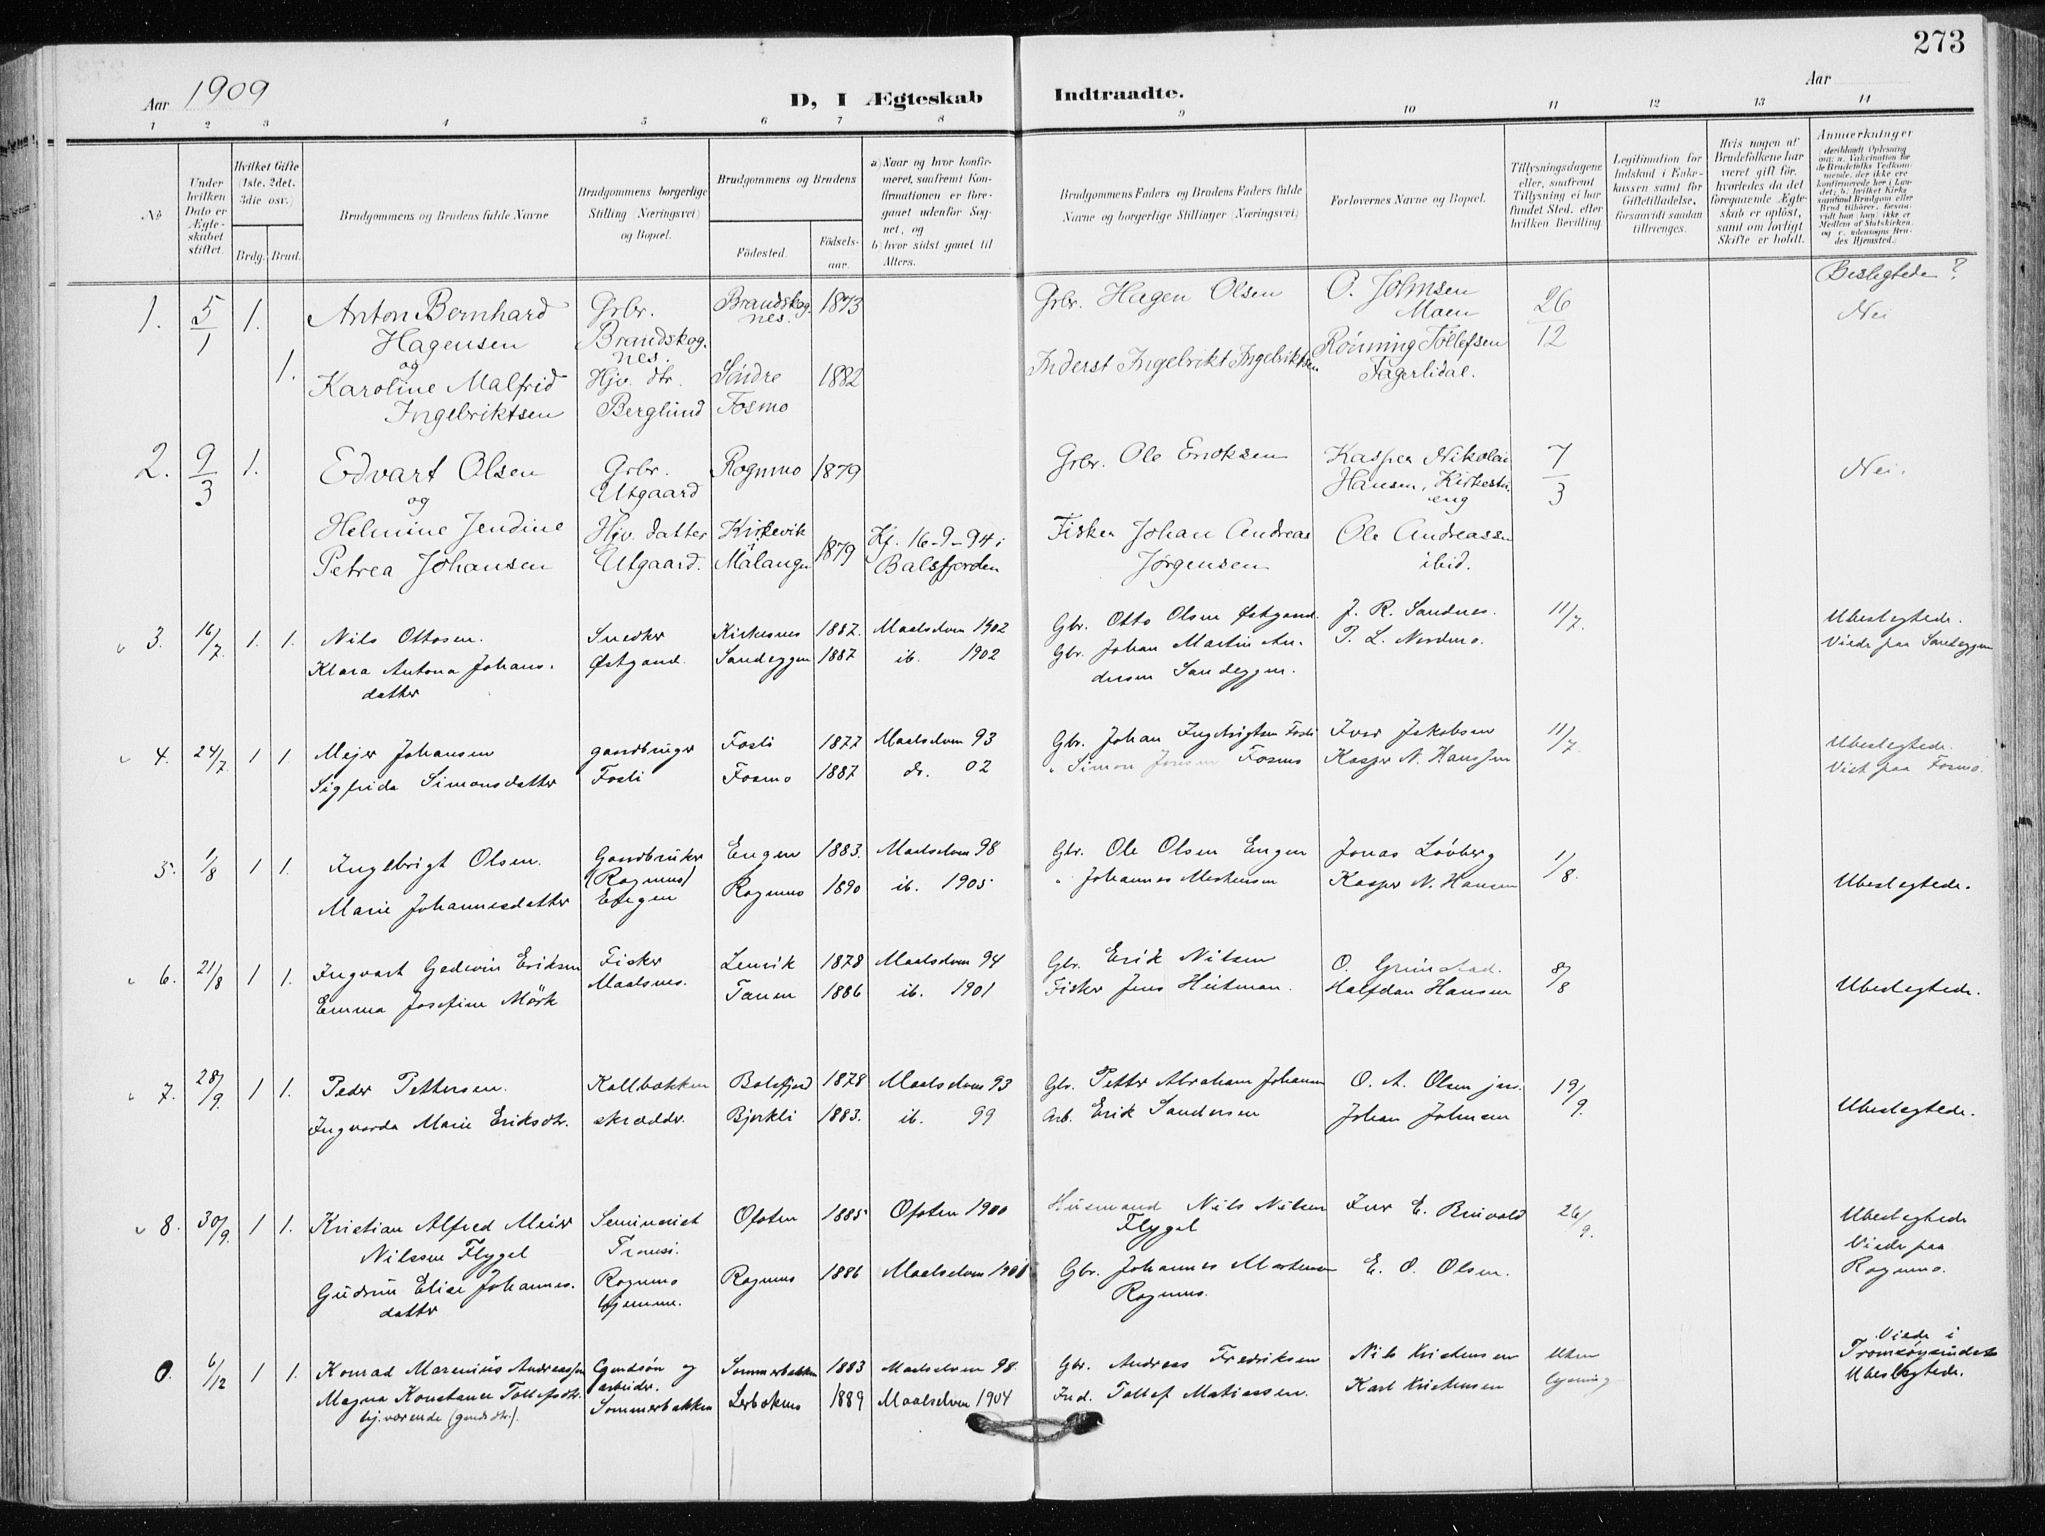 273
Aar 1909
D, I Ægteskab Indtraadte.
Aar
1 2 3 4 5 6 7 8 9 10 11 12 13 14
No
Under hvilken Dato er Ægteskabet stiftet.
Hvilket Gifte (1ste, 2det, 3die osv.)
Brdg. Brud.
Brudgommens og Brudens fulde Navne
Brudgommens borgerlige Stilling (Næringsvei) og Bopæl.
Brudgommens og Brudens
Fødested.
Fødselsaar.
a) Naar og hvor konfirmeret, saafremt Konfirmationen er foregaaet udenfor Sognet, og
b) hvor sidst gaaet til Alters.
Brudgommens Faders og Brudens Faders fulde Navne og borgerlige Stillinger (Næringsvei)
Forlovernes Navne og Bopæl.
Tillysningsdagene eller, saafremt Tillysning ei har fundet Sted, efter hvilken Bevilling.
Legitimation for Indskud i Enkekassen samt for Giftetilladelse, forsaavidt saadan tiltrænges.
Hvis nogen af Brudefolkene har været gift før, hvorledes da det foregaaende Ægteskab er opløst, samt om lovligt Skifte er holdt.
Anmærkninger
Beslegtede?
1. 5/1 1. Anton Bernhard Grbr. Brandskog 1873 Grbr. Hagen Olsen O. Johnsen 26/12 Nei
Hagensen Brandskog. nes. Moen
og nes. Rönning Tollefsen
1. Karoline Malfrid Hjv. dtr. Söndre 1882 Inderst Ingebrikt Ingebriktsen Fagerlidal.
Ingebriktsen Berglund Fosmo
2. 9/3 1. Edvart Olsen Grbr. Rognmo 1879 Grbr. Ole Eriksen Kasper Nikolai 7/3 Nei.
og Utgaard Hansen, Kirkes
eng
Helmine Jendine Hjv. datter Kirkevik Kf. 16-9-94 i Fisker Johan Andreas Ole Andreassen
Petrea Johansen Utgaard. Malangen 1879 Balsfjorden Jørgensen ibid.
3. 16/7 1. 1. Nils Ottosen. Snedker Kirkesnes 1887. Maalselven 1902 Gbr. Otto Olsen Østgaard. J. R. Sandnes. 11/7. Ubeslegtede.
Klara Antona Johans- Østgaard. Sandeggen 1887 ib. 1902 Gbr. Johan Martin An- P. L. Nordmo. Viede paa Sandeggen
datter dersen Sandeggen.
4. 24/7 1 1. Mejer Johansen gaardbruger Fosli 1877 Maalselven 93 Gbr. Johan Ingebrigtsen Fosli Iver Jakobsen 11/7. Ubeslegtede.
Sigfrida Simonsdatter Fosli Fosmo 1887 do. 02 " Simon Jonsen Fosmo Kasper N. Hanssen Viet paa Fosmo.
5. 1/8 1 1. Ingebrigt Olsen. Gaardbruker Engen 1883. Maalselven 98 Gbr. Ole Olsen Engen Jonas Lövberg 1/8.
(Rognmo)
Marie Johannesdatter Engen Rognmo 1890 ib. 1905 " Johannes Mortensen Kasper N. Hansen Ubeslegtede.
6. 21/8 1 1. Ingvart Gedevin Eriksen Fisker Lenvik 1878 Maalselven 94 Gbr. Erik Nilsen O. Grimstad. 8/8
Emma Josefine Mörk Maalsnes. Tanen 1886 ib. 1901 Fisker Jens Heitman. Halfdan Hansen Ubeslegtede.
7. 28/9. 1 1. Peder Pettersen. Kallbakken Balsfjord 1878 Maalselven 93 Gbr. Petter Abraham Johansen O. A. Olsen jun. 19/9.
Ingvarda Marie Eriksdtr. skrædder. Bjerkli 1883. ib. 99 Arb. Erik Sandersen Johan Johnsen Ubeslegtede.
8. 30/9. 1 1. Kristian Alfred Meier Seminarist Ofoten 1885 Ofoten 1900 Husmand Nils Nilsen Iver E. Brivold 26/9. Ubeslegtede
Nilssen Flygel Tromsö. Flygel Viede paa
Gudrun Elise Johannes- Rognmo Rognmo 1886 Maalselven 1901 Gbr. Johannes Mortensen E. O. Olsen. Rognmo.
datter hjemme. Rognmo.
Viede i
9. 6/12 1 1. Konrad Marenius Andreassen Gaardsøn og Sommerbakken 1883 Maalselven 98. Gbr. Andreas Fredriksen Nils Kristensen Uten Tromsøysundet
Magna Konstance Tollefsdtr. arbeider. Lerbækmo 1889 Maalselven 1904 Ind. Tollef Matiassen. Karl Kristensen lysning Ubeslegtede.
hj. værende (gaardsdtr.). Sommerbakken